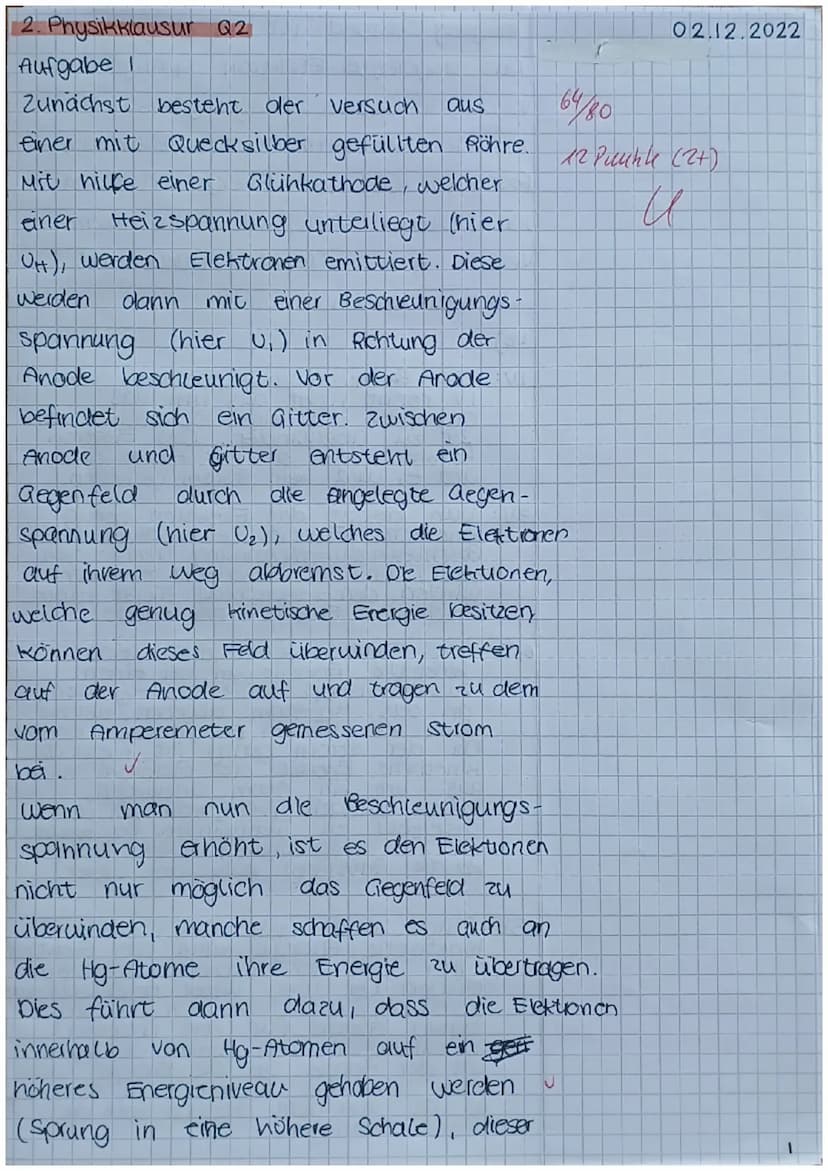 2. Physikklausur Q2
02.12.2022
Aufgabe 1
Zunächst besteht der Versuch aus
64/80
einer mit Quecksilber gefüllten Röhre.
12 Punkte (2+)
Mit hilfe einer Glühkathode, welcher
einer Heizspannung unterliegt (hier
U_H), werden Elektronen emittiert. Diese
werden dann mit einer Beschleunigungs-
spannung (hier U₁) in Richtung der
Anode beschleunigt. Vor der Anode
befindet sich ein Gitter. Zwischen
Anode und Gitter entsteht ein
Gegenfeld durch die angelegte Gegen-
spannung (hier U₂), welches die Elektronen
auf ihrem Weg abbremst. Die Elektronen,
welche genug kinetische Energie besitzen,
können dieses Feld überwinden, treffen
auf der Anode auf und tragen zu dem
vom Amperemeter gemessenen Strom
bei. ✓
Wenn man nun die Beschleunigungs-
spannung erhöht, ist es den Elektronen
nicht nur möglich das Gegenfeld zu
überwinden, manche schaffen es auch an
die Hg-Atome ihre Energie zu übertragen.
Dies führt dann dazu, dass die Elektronen
innerhalb von Hg-Atomen auf ein
höheres Energieniveau gehoben werden ✓
(Sprung in eine höhere Schale), dieser
1